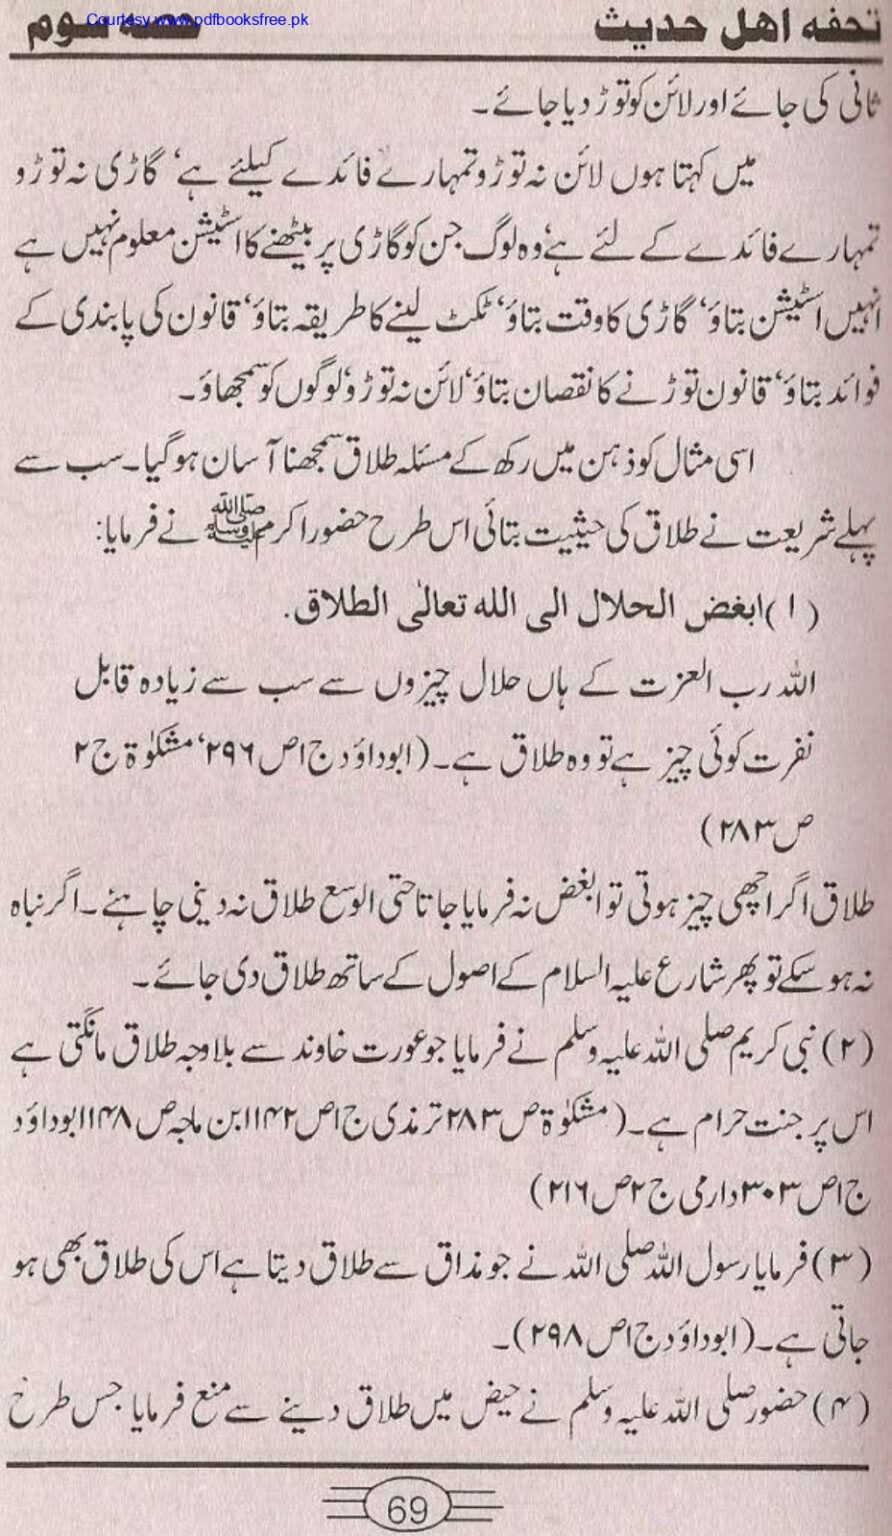 Courtesy www.pdfbooksfree.pk
تحفه اهل حدیث حصه سوم
ثانی کی جائے اور لائن کو توڑ دیا جائے۔
میں کہتا ہوں لائن نہ توڑو تمہارے فائدے کیلئے ہے‘ گاڑی نہ توڑو
تمہارے فائدے کے لئے ہے‘ وہ لوگ جن کو گاڑی پر بیٹھنے کا اسٹیشن معلوم نہیں ہے
انہیں اسٹیشن بتاؤ‘ گاڑی کا وقت بتاؤ‘ ٹکٹ لینے کا طریقہ بتاؤ‘ قانون کی پابندی کے
فوائد بتاؤ‘ قانون توڑنے کا نقصان بتاؤ‘ لائن نہ توڑو‘ لوگوں کو سمجھاؤ۔
اسی مثال کو ذہن میں رکھ کے مسئلہ طلاق سمجھنا آسان ہو گیا۔ سب سے
پہلے شریعت نے طلاق کی حیثیت بتائی اس طرح حضور اکرم ﷺ نے فرمایا:
(۱) ابغض الحلال الی الله تعالیٰ الطلاق.
اللہ رب العزت کے ہاں حلال چیزوں سے سب سے زیادہ قابل
نفرت کوئی چیز ہے تو وہ طلاق ہے۔ (ابوداؤد ج ۱ ص ۲۹۶‘ مشکوٰۃ ج ۲
ص ۲۸۳)
طلاق اگر اچھی چیز ہوتی تو ابغض نہ فرمایا جاتا حتی الوسع طلاق نہ دینی چاہئے۔ اگر نباہ
نہ ہو سکے تو پھر شارع علیہ السلام کے اصول کے ساتھ طلاق دی جائے۔
(۲) نبی کریم صلی اللہ علیہ وسلم نے فرمایا جو عورت خاوند سے بلاوجہ طلاق مانگتی ہے
اس پر جنت حرام ہے۔ (مشکوٰۃ ص ۲۸۳ ترمذی ج ۱ ص ۱۴۲ ابن ماجہ ص ۱۴۸ ابوداؤد
ج ۱ ص ۳۰۳ دارمی ج ۲ ص ۲۱۶)
(۳) فرمایا رسول اللہ صلی اللہ نے جو مذاق سے طلاق دیتا ہے اس کی طلاق بھی ہو
جاتی ہے۔ (ابوداؤد ج ۱ ص ۲۹۸)۔
(۴) حضور صلی اللہ علیہ وسلم نے حیض میں طلاق دینے سے منع فرمایا جس طرح
69